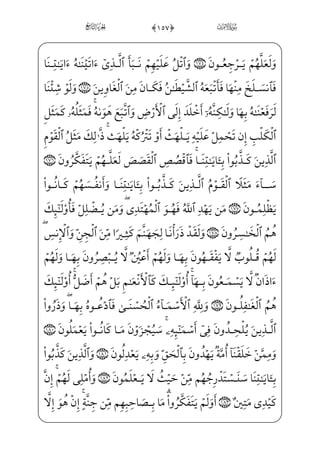 سُورَةُ الأَعْرَافِ ﴿١٥٧﴾ الجُزْءُ التَّاسِعُ
وَلَعَلَّهُمْ يَرْجِعُونَ ١٧٤ وَٱتْلُ عَلَيْهِمْ نَبَأَ ٱلَّذِىٓ ءَاتَيْنَـٰهُ ءَايَـٰتِنَا
فَٱنسَلَخَ مِنْهَا فَأَتْبَعَهُ ٱلشَّيْطَـٰنُ فَكَانَ مِنَ ٱلْغَاوِينَ ١٧٥ وَلَوْ شِئْنَا
لَرَفَعْنَـٰهُ بِهَا وَلَـٰكِنَّهُۥٓ أَخْلَدَ إِلَى ٱلْأَرْضِ وَٱتَّبَعَ هَوَىٰهُ ۚ فَمَثَلُهُۥ كَمَثَلِ
ٱلْكَلْبِ إِن تَحْمِلْ عَلَيْهِ يَلْهَثْ أَوْ تَتْرُكْهُ يَلْهَث ۚ ذَّٰلِكَ مَثَلُ ٱلْقَوْمِ
ٱلَّذِينَ كَذَّبُوا۟ بِـَٔايَـٰتِنَا ۚ فَٱقْصُصِ ٱلْقَصَصَ لَعَلَّهُمْ يَتَفَكَّرُونَ ١٧٦
سَآءَ مَثَلًا ٱلْقَوْمُ ٱلَّذِينَ كَذَّبُوا۟ بِـَٔايَـٰتِنَا وَأَنفُسَهُمْ كَانُوا۟
يَظْلِمُونَ ١٧٧ مَن يَهْدِ ٱللَّهُ فَهُوَ ٱلْمُهْتَدِى ۖ وَمَن يُضْلِلْ فَأُو۟لَـٰٓئِكَ
هُمُ ٱلْخَـٰسِرُونَ ١٧٨ وَلَقَدْ ذَرَأْنَا لِجَهَنَّمَ كَثِيرًا مِّنَ ٱلْجِنِّ وَٱلْإِنسِ ۖ
لَهُمْ قُلُوبٌ لَّا يَفْقَهُونَ بِهَا وَلَهُمْ أَعْيُنٌ لَّا يُبْصِرُونَ بِهَا وَلَهُمْ
ءَاذَانٌ لَّا يَسْمَعُونَ بِهَآ ۚ أُو۟لَـٰٓئِكَ كَٱلْأَنْعَـٰمِ بَلْ هُمْ أَضَلُّ ۚ أُو۟لَـٰٓئِكَ
هُمُ ٱلْغَـٰفِلُونَ ١٧٩ وَلِلَّهِ ٱلْأَسْمَآءُ ٱلْحُسْنَىٰ فَٱدْعُوهُ بِهَا ۖ وَذَرُوا۟
ٱلَّذِينَ يُلْحِدُونَ فِىٓ أَسْمَـٰٓئِهِۦ ۚ سَيُجْزَوْنَ مَا كَانُوا۟ يَعْمَلُونَ ١٨٠
وَمِمَّنْ خَلَقْنَآ أُمَّةٌ يَهْدُونَ بِٱلْحَقِّ وَبِهِۦ يَعْدِلُونَ ١٨١ وَٱلَّذِينَ كَذَّبُوا۟
بِـَٔايَـٰتِنَا سَنَسْتَدْرِجُهُم مِّنْ حَيْثُ لَا يَعْلَمُونَ ١٨٢ وَأُمْلِى لَهُمْ ۚ إِنَّ
كَيْدِى مَتِينٌ ١٨٣ أَوَلَمْ يَتَفَكَّرُوا۟ ۗ مَا بِصَاحِبِهِم مِّن جِنَّةٍ ۚ إِنْ هُوَ إِلَّا